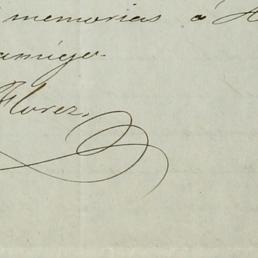 memorias á
amigo
Florez.